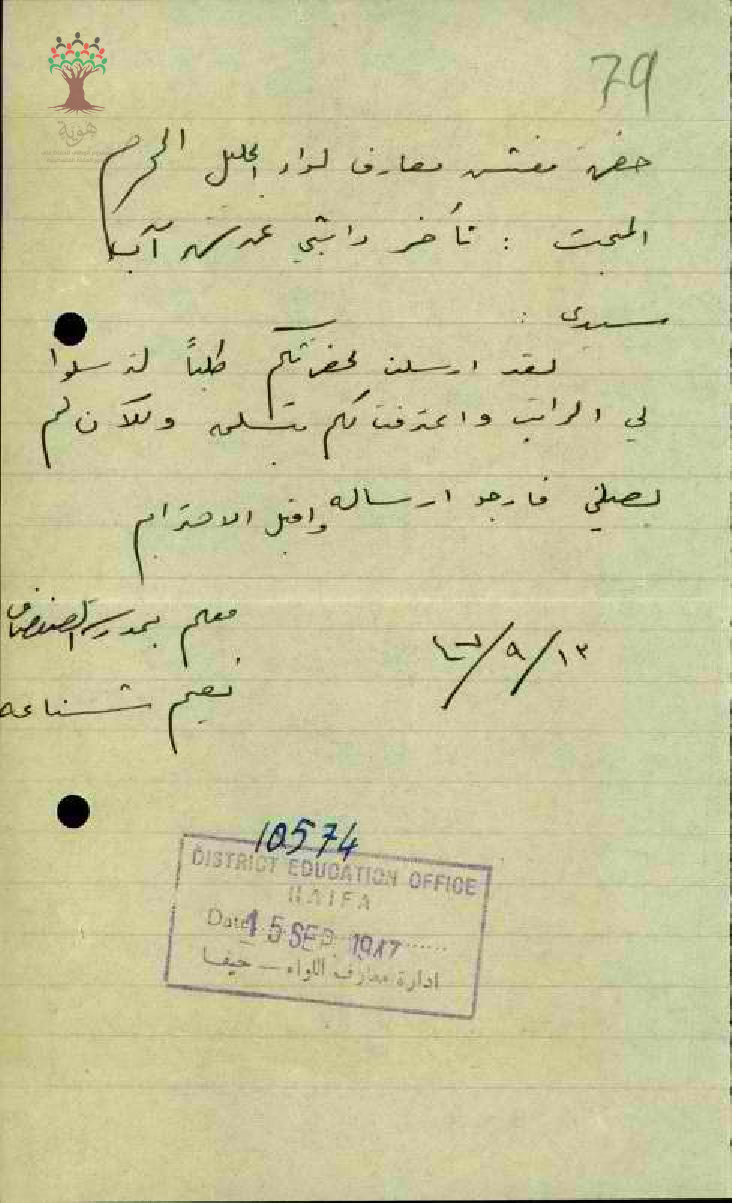 79
هوية
حضرة مفتش معارف لواء الجليل المحترم
المبحث : تأخر راتبي عن شهر آب
سيدي :
لقد ارسلت لحضرتكم طلباً لترسلوا
لي الراتب واعترفت لكم بتسلمه وللآن لم
يصلني فارجو ارساله واقبل الاحترام
معلم بمدرسة الصفصاف
١٣/٩/٤٧
نعيم شناعه
10574
DISTRICT EDUCATION OFFICE
HAIFA
Date 15 SEP 1947
ادارة معارف اللواء – حيفا